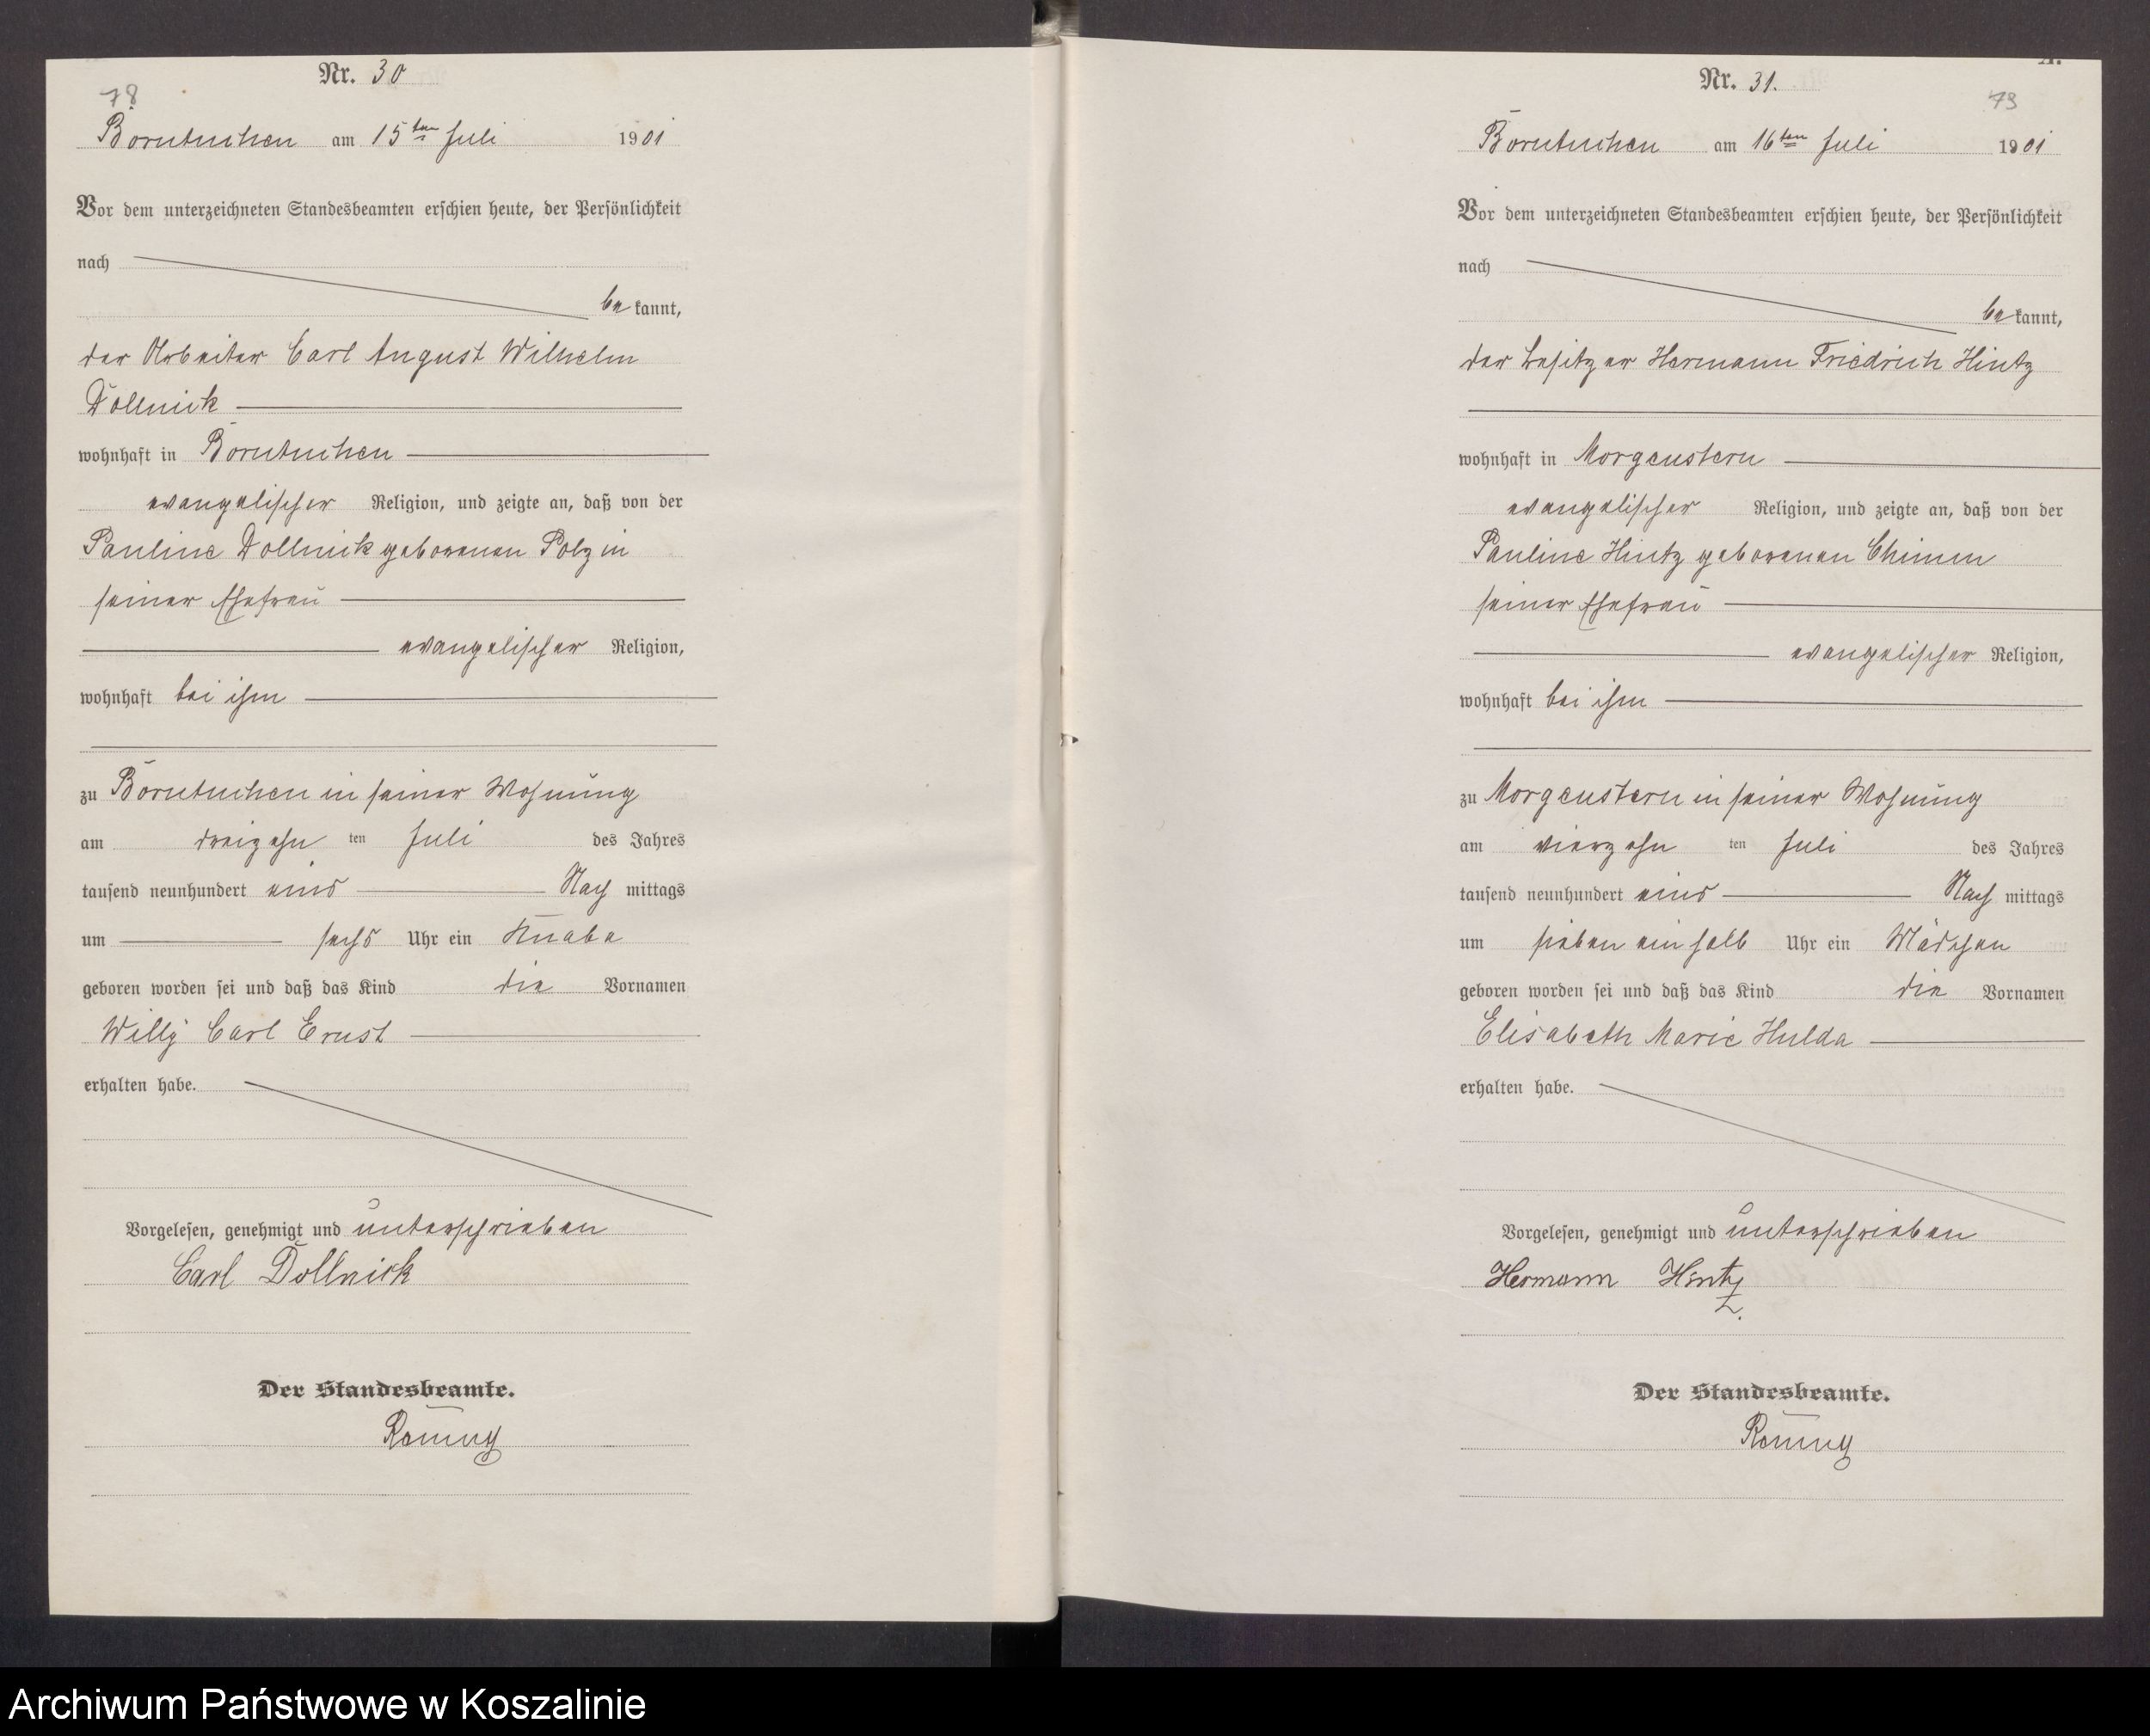 Nr. 30
78
Borntuchen am 15ten Juli 1901
Vor dem unterzeichneten Standesbeamten erschien heute, der Persönlichkeit
nach
be kannt,
der Arbeiter Carl August Wilhelm
Dollnick
wohnhaft in Borntuchen
evangelischer Religion, und zeigte an, daß von der
Pauline Dollnick geborenen Polzin
seiner Ehefrau
evangelischer Religion,
wohnhaft bei ihm
zu Borntuchen in seiner Wohnung
am dreizehn ten Juli des Jahres
tausend neunhundert eins Nach mittags
um sechs Uhr ein Knabe
geboren worden sei und daß das Kind die Vornamen
Willy Carl Ernst
erhalten habe.
Vorgelesen, genehmigt und unterschrieben
Carl Dollnick
Der Standesbeamte.
Nr. 31.
79
Borntuchen am 16ten Juli 1901
Vor dem unterzeichneten Standesbeamten erschien heute, der Persönlichkeit
nach
be kannt,
der Besitzer Hermann Friedrich Hintz
wohnhaft in Morgenstern
evangelischer Religion, und zeigte an, daß von der
Pauline Hintz geborenen
seiner Ehefrau
evangelischer Religion,
wohnhaft bei ihm
zu Morgenstern in seiner Wohnung
am vierzehn ten Juli des Jahres
tausend neunhundert eins Nach mittags
um sieben ein halb Uhr ein Mädchen
geboren worden sei und daß das Kind die Vornamen
Elisabeth Marie Hulda
erhalten habe.
Vorgelesen, genehmigt und unterschrieben
Hermann Hintz
Der Standesbeamte.
Archiwum Państwowe w Koszalinie